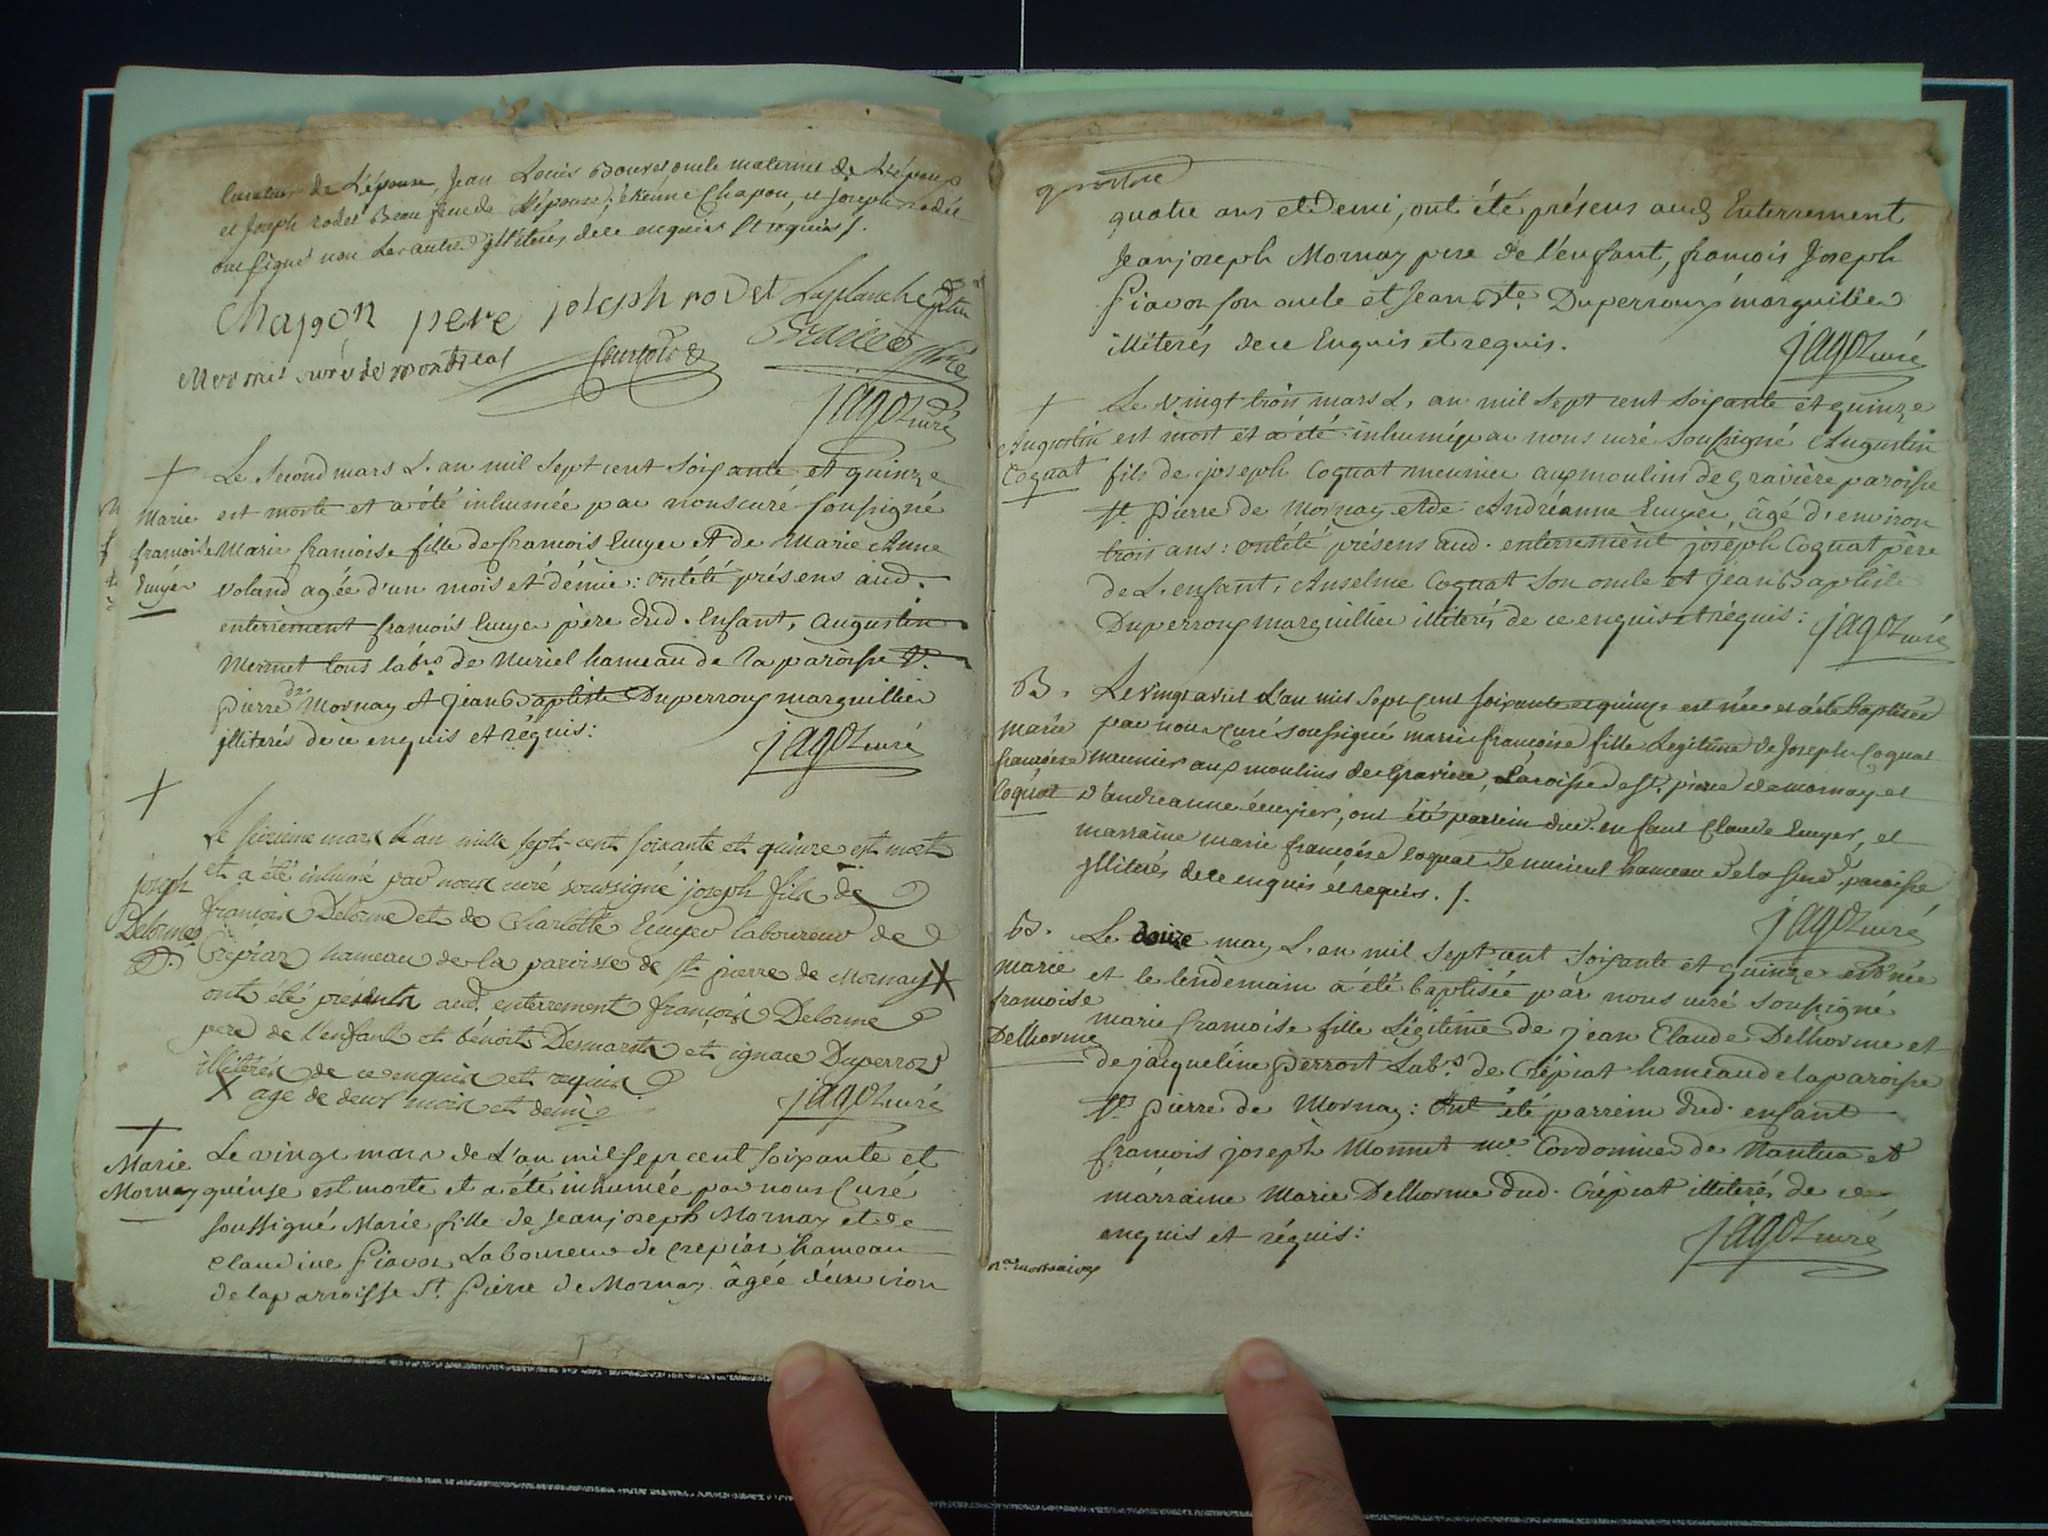 curateur de L'épouse, Jean Louis Bouvet oncle maternel de L'époux
et Joseph rodet Beau frere de L'épouse; étienne Chapon, et joseph rodet
ont signé non Les autres illiterés de ce enquis et requis /.
Chapon pere joseph rodet Laplanche
Mermet curé de montreal
jagoz curé
Le second mars L'an mil sept cent soixante et quinze
Marie est morte et a été inhumée par nous curé soussigné
francoise Marie francoise fille de francois Emyer et de Marie Anne
Emyer Voland agée d'un mois et démie: ont été présens aud.
enterrement francois Emyer père dud. Enfant, Augustin
Mermet tous labrs de Muriel hameau de la paroisse St.
pierre de Mornay et jean Baptiste Duperroux marguillier
illiterés de ce enquis et réquis:
jagoz curé
Le seizieme mars L'an mille sept cent soixante et quinze est mort
joseph et a été inhumé par nous curé soussigné joseph fils de
Delorme françois Delorme et de Charlotte Emyer laboureur de
Crepiat hameau de la paroisse de st pierre de Mornay X
ont été presents aud. enterrement françois Delorme
pere de l'enfant et bénoit Desmaret et ignace Duperroz
illitérés de ce enquis et requis
X age de deux mois et demi jagoz curé
Marie Le vingt mars de L'an mil sept cent soixante et
Mornay quinse est morte et a été inhumée par nous Curé
soussigné Marie fille de Jean joseph Mornay et de
Claudine Piavoz Laboureur de Crepiat hameau
de la parroisse St. Pierre de Mornay âgée d'environ
quatre ans et Demi, ont été présens aud. Enterrement
Jean joseph Mornay pere de l'enfant, francois Joseph
Piavoz son oncle et Jean Bte. Duperroux marguillier
illiterés de ce Enquis et requis.
jagoz curé
Le vingt trois mars L'an mil sept cent soixante et quinze
Augustin est mort et a été inhumé par nous curé soussigné Augustin
Coquat fils de joseph Coquat meunier aux moulins de gravière paroisse
st. pierre de Mornay et de Andréanne Emyer, âgé d'environ
trois ans: ont été présens aud. enterrement joseph Coquat père
de L'enfant, Anselme Coquat son oncle et jean Baptiste
Duperroux marguillier illiterés de ce enquis et réquis: jagoz curé
B. Le vingt avril L'an mil sept cent soixante et quinze est née et a été Baptisée
marie par nous Curé soussigné marie francoise fille Legitime de Joseph Coquat
francoise meunier aux moulins de Graviere, Paroisse de st. pierre de mornay et
Coquat d'andreanne émyer; ont été parrein dud. enfant Claude Emyer, et
marraine marie francoise coquat de murieul hameau de la susd. paroisse
illiterés de ce enquis et requis. /.
jagoz curé
B. Le douze may L'an mil sept cent soixante et quinze est née
marie et le lendemain a été baptisée par nous curé soussigné
francoise marie francoise fille Légitime de jean Claude Delhorme et
Delhorme de jacqueline perrort Labrs. de Crépiat hameau de la paroisse
st. pierre de Mornay: ont été parrein dud. enfant
francois joseph Monnet me. Cordonnier de Nantua et
marraine Marie Delhorme dud. Crépiat illiterés de ce
enquis et réquis:
jagoz curé